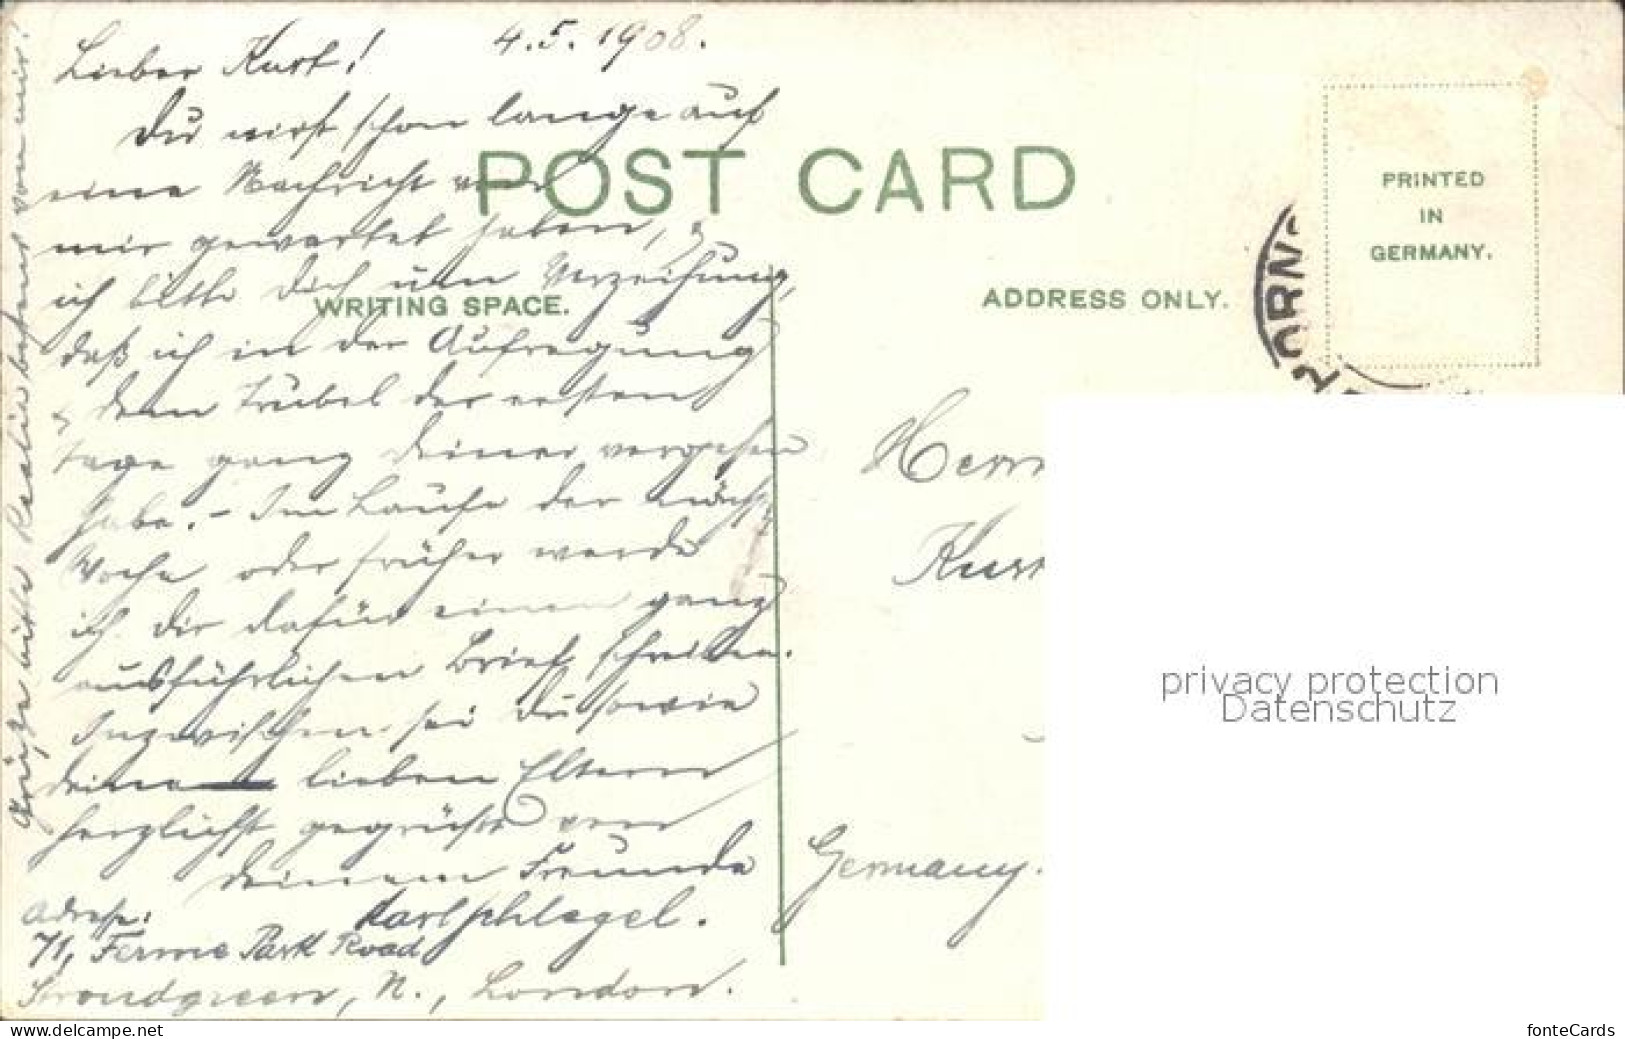 4.5.1908.
Lieber Kurt!
Du wirst schon lange auf
eine Nachricht von
mir gewartet haben, &
ich bitte Dich um Verzeihung,
daß ich in der Aufregung
& dem Trubel der ersten
Tage ganz Deiner vergessen
habe. – Im Laufe der nächst.
Woche oder früher werde
ich Dir dafür einen ganz
ausführlichen Brief schreiben.
Inzwischen sei Du sowie
deine lieben Eltern
herzlichst gegrüßt von
Deinem Freunde
Karl Schlegel.
Adresse:
71, Ferme Park Road
Stroudgreen, N., London.
Grüße bitte bestens von mir!
POST CARD
WRITING SPACE.
ADDRESS ONLY.
PRINTED
IN
GERMANY.
ORNS
Herrn
Kurt
Germany.
privacy protection
Datenschutz
www.delcampe.net
fonteCards